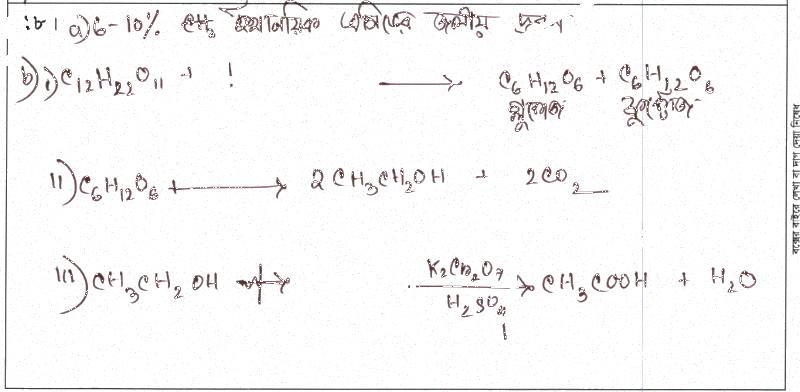 ১৮। a) 6-10% ইথানয়িক এসিডের জলীয় দ্রবণ
b) i) C₁₂H₂₂O₁₁ + ! ⟶ C₆H₁₂O₆ + C₆H₁₂O₆
গ্লুকোজ ফ্রুক্টোজ
ii) C₆H₁₂O₆ + ⟶ 2CH₃CH₂OH + 2CO₂
iii) CH₃CH₂OH ⟶ K₂Cr₂O₇ / H₂SO₄ ⟶ CH₃COOH + H₂O
বক্সের বাইরে লেখা বা দাগ দেয়া নিষেধ